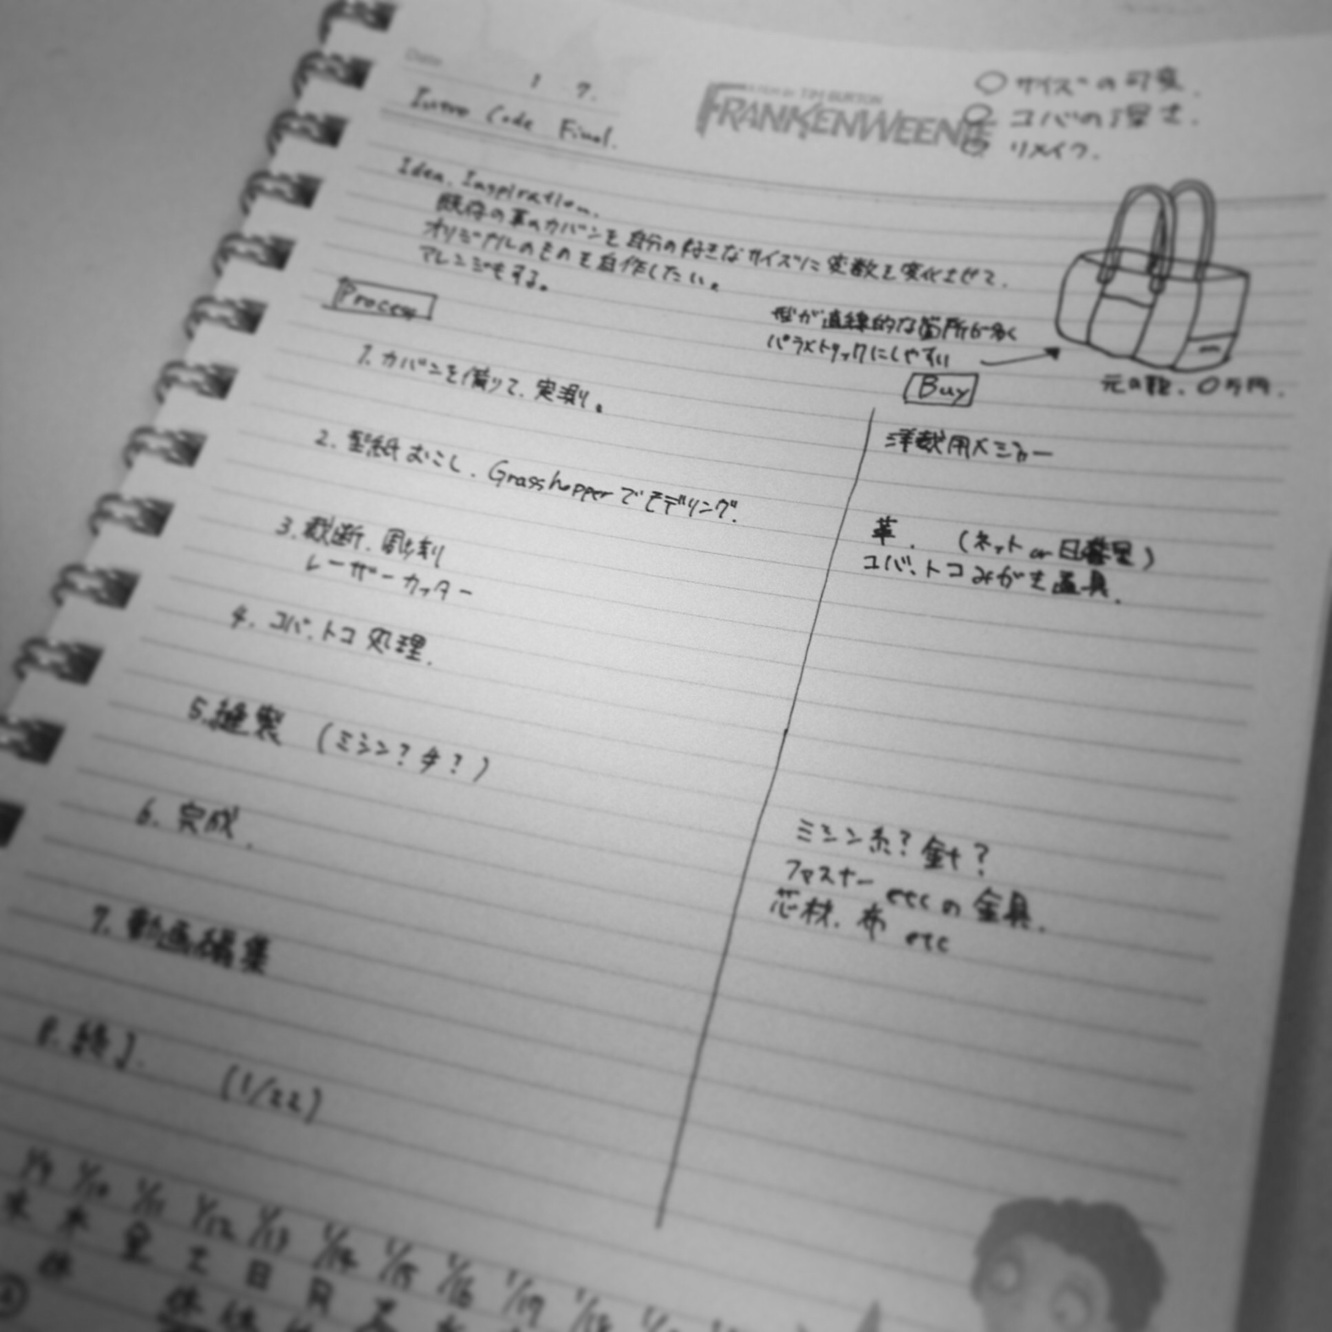 Date
1 7.
Intro Code Final.
A FILM BY TIM BURTON
FRANKENWEENIE
○ サイズの可変.
○ コバの厚さ.
リメイク.
Idea. Inspiration.
既存の革のカバンを自分の好きなサイズに変数を変化させて.
オリジナルのものを自作したい。
アレンジもする。
型が直線的な箇所が多く
パラメトリックにしやすい
元の鞄. 〇万円.
Process
1. カバンを借りて、実測。
2. 型紙おこし. Grasshopperでモデリング.
3. 裁断. 彫刻
レーザーカッター
4. コバ、トコ 処理.
5. 縫製 (ミシン?手?)
6. 完成.
7. 動画編集
8. 終了. (1/22)
Buy
洋裁用メジャー
革. (ネット or 日暮里)
コバ、トコ みがき道具.
ミシン糸? 針?
ファスナー etcの金具.
芯材. 布 etc
1/9 1/10 1/11 1/12 1/13 1/14 1/15 1/16 1/17 1/18
水 木 金 土 日 月 火
休 休 休